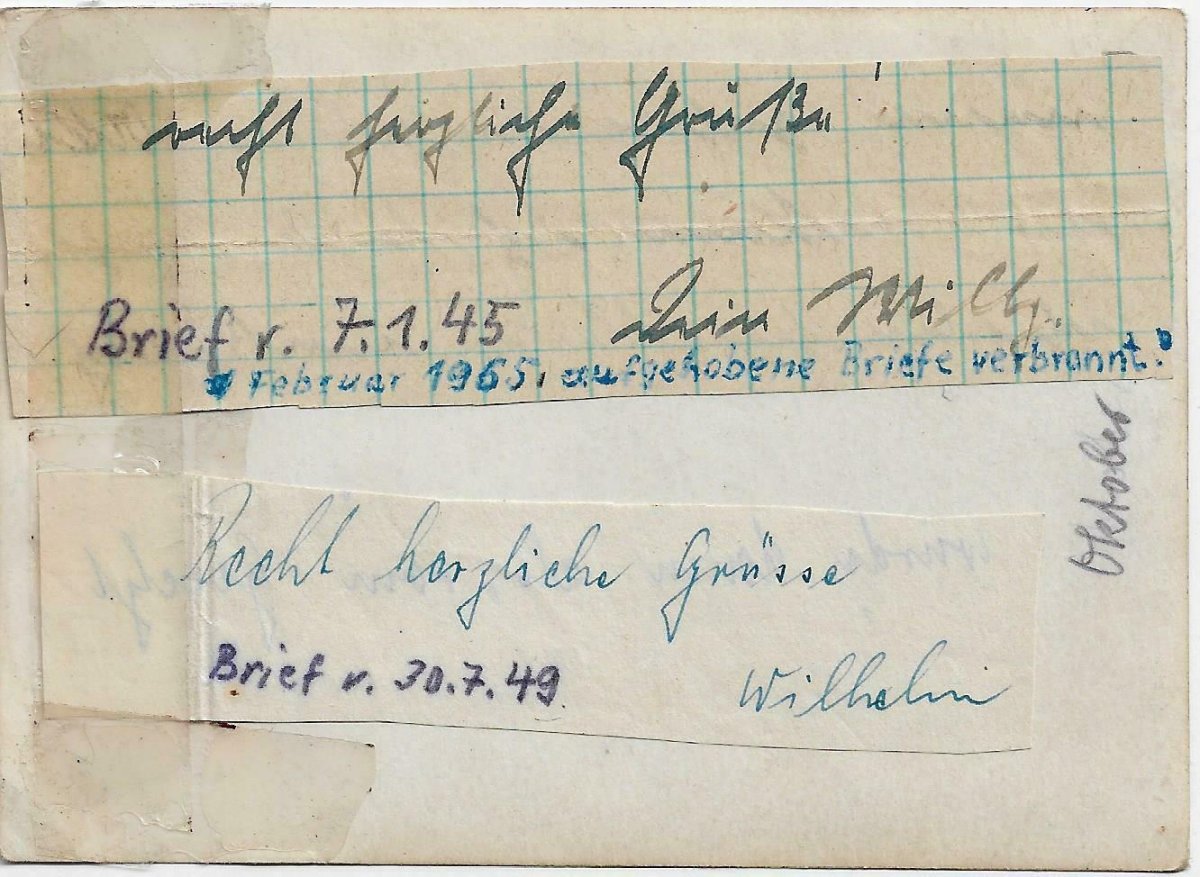 recht herzliche Grüße
Dein Willy.
Brief v. 7.1.45
Februar 1965 aufgehobene Briefe verbrannt.
Oktober
Recht herzliche Grüsse
Brief v. 30.7.49
Wilhelm